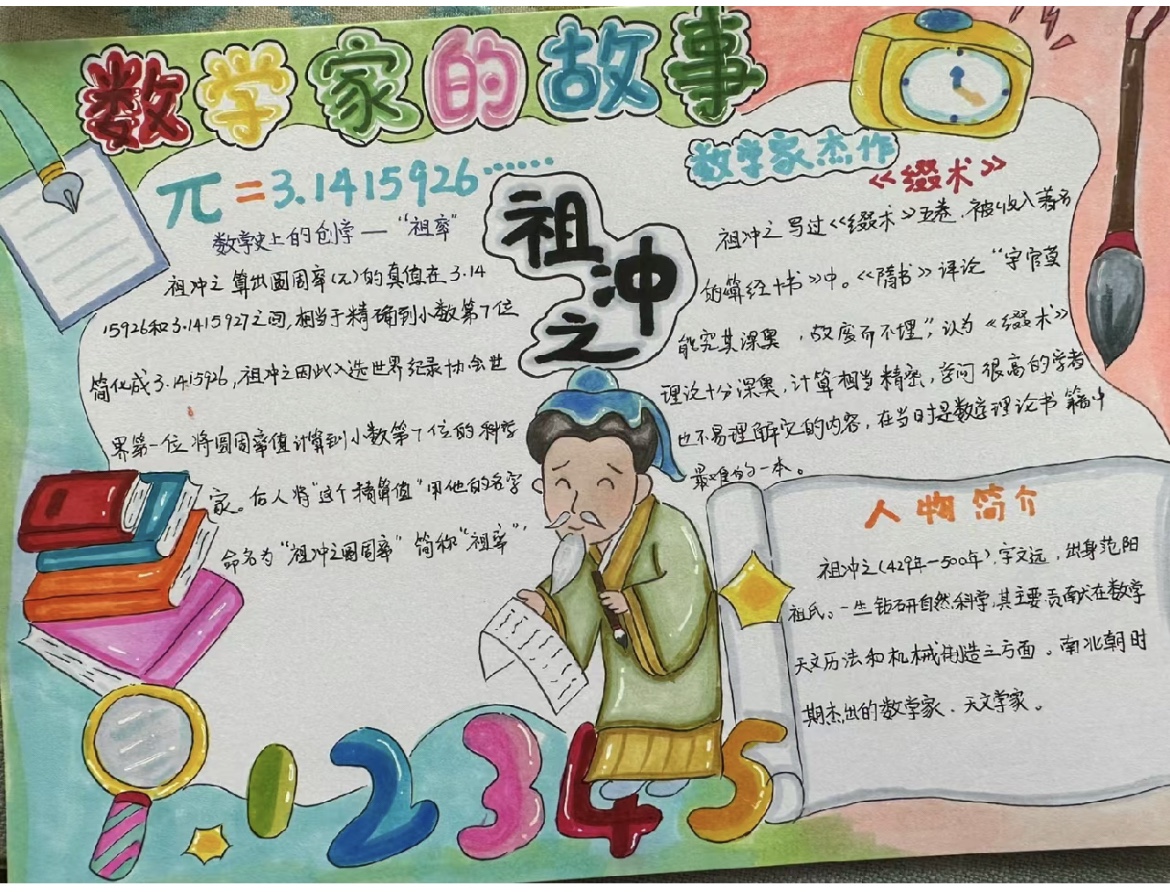 数学家的故事
π=3.1415926……
数学史上的创悖—“祖率”
祖冲之算出圆周率(π)的真值在3.14
15926和3.1415927之间,相当于精确到小数第7位
简化成3.1415926,祖冲之因此入选世界纪录协会世
界第一位将圆周率值计算到小数第7位的科学
家。后人将“这个精算值”用他的名字
命名为“祖冲之圆周率”简称“祖率”.
祖
冲
之
数学家杰作
《缀术》
祖冲之写过《缀术》五卷,被收入著名
的算经十书》中。《隋书》评论“学官莫
能究其深奥,故废而不理”,认为《缀术》
理论十分深奥,计算相当精密,学问很高的学者
也不易理解它的内容,在当时是数学理论书籍中
最难的一本。
人物简介
祖冲之(429年—500年),字文远,出身范阳
祖氏。一生钻研自然科学,其主要贡献在数学
天文历法和机械制造三方面。南北朝时
期杰出的数学家、天文学家。
0 2 3 4 5